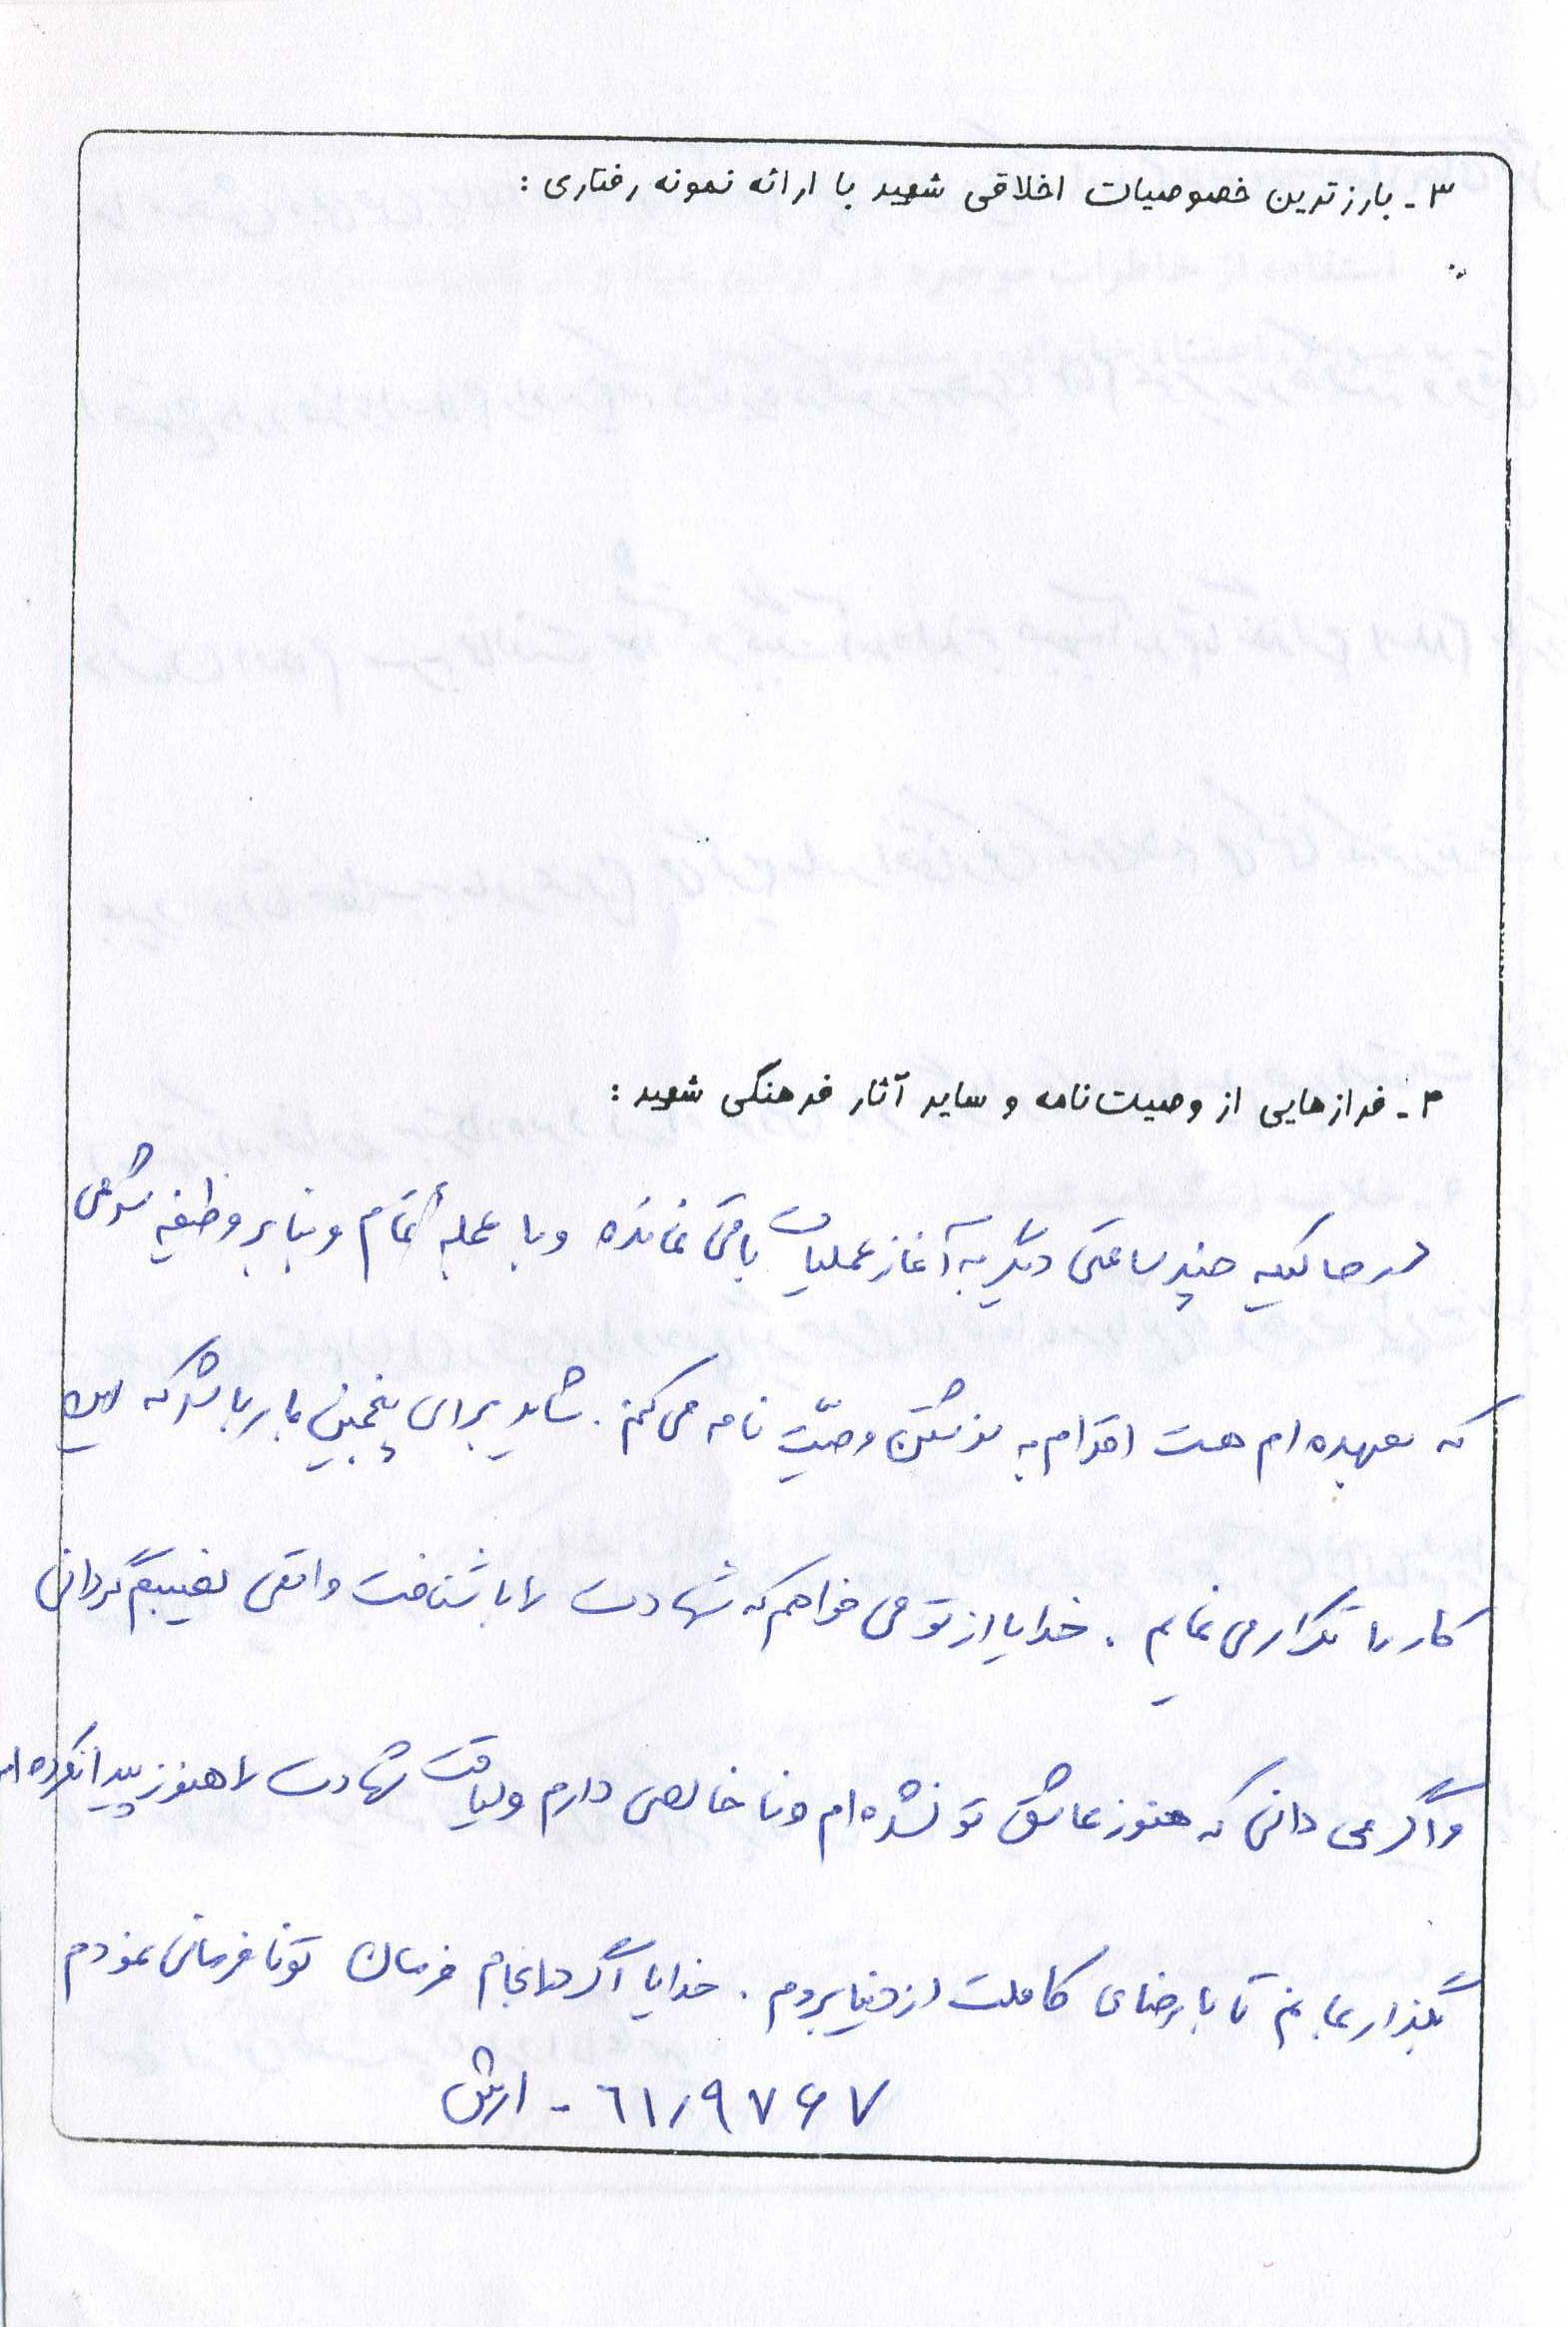 ۳ـ بارزترین خصوصیات اخلاقی شهید با ارائه نمونه رفتاری :
۴ـ فرازهایی از وصیت‌نامه و سایر آثار فرهنگی شهید :
در حالیکه چند ساعتی دیگر به آغاز عملیات باقی نمانده و با عجله تمام و بنا بر وظیفه شرعی
که بعهده ام هست اقدام به نوشتن وصیّت نامه می کنم . شاید برای پنجمین بار باشد که این
کار را تکرار می نمایم . خدایا از تو می خواهم که شهادت را با شناخت واقعی نصیبم گردانی
و اگر می دانی که هنوز عاشق تو نشده ام و نا خالصی دارم و لیاقت شهادت را هنوز پیدا نکرده ام
بگذار بمانم تا با رضای کاملت از دنیا بروم . خدایا اگر در انجام فرمان تو نا فرمانی نمودم
۶۱/۹۷۶۷ - ارتش